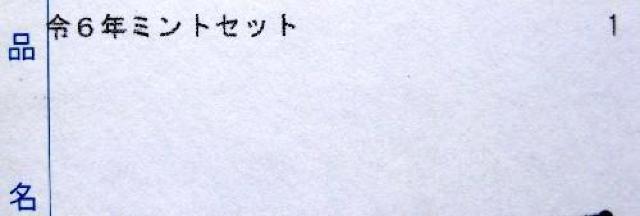 令６年ミントセット 1
品
名